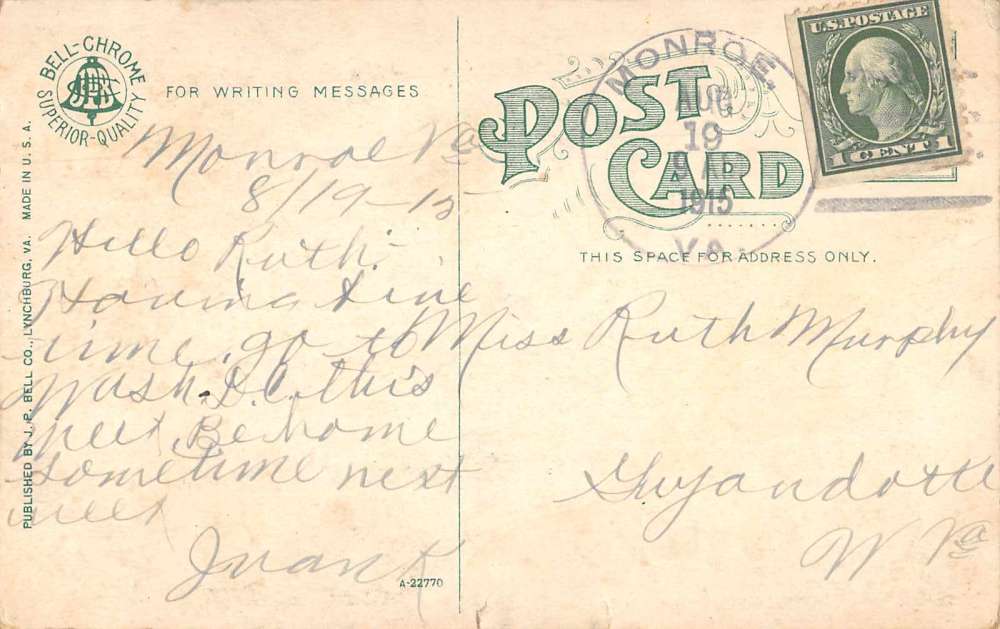 BELL-CHROME
SUPERIOR-QUALITY
FOR WRITING MESSAGES
PUBLISHED BY J. P. BELL CO., LYNCHBURG, VA. MADE IN U. S. A.
Monroe Va
8/19-15
Hello Ruth.
Having fine
time. go to
Wash. D.C. this
week. Be home
sometime next
week
A-22770
POST CARD
MONROE,
AUG
19
1915
VA.
U.S. POSTAGE
1 CENT 1
THIS SPACE FOR ADDRESS ONLY.
Miss Ruth Murphy
Guyandotte
W Va